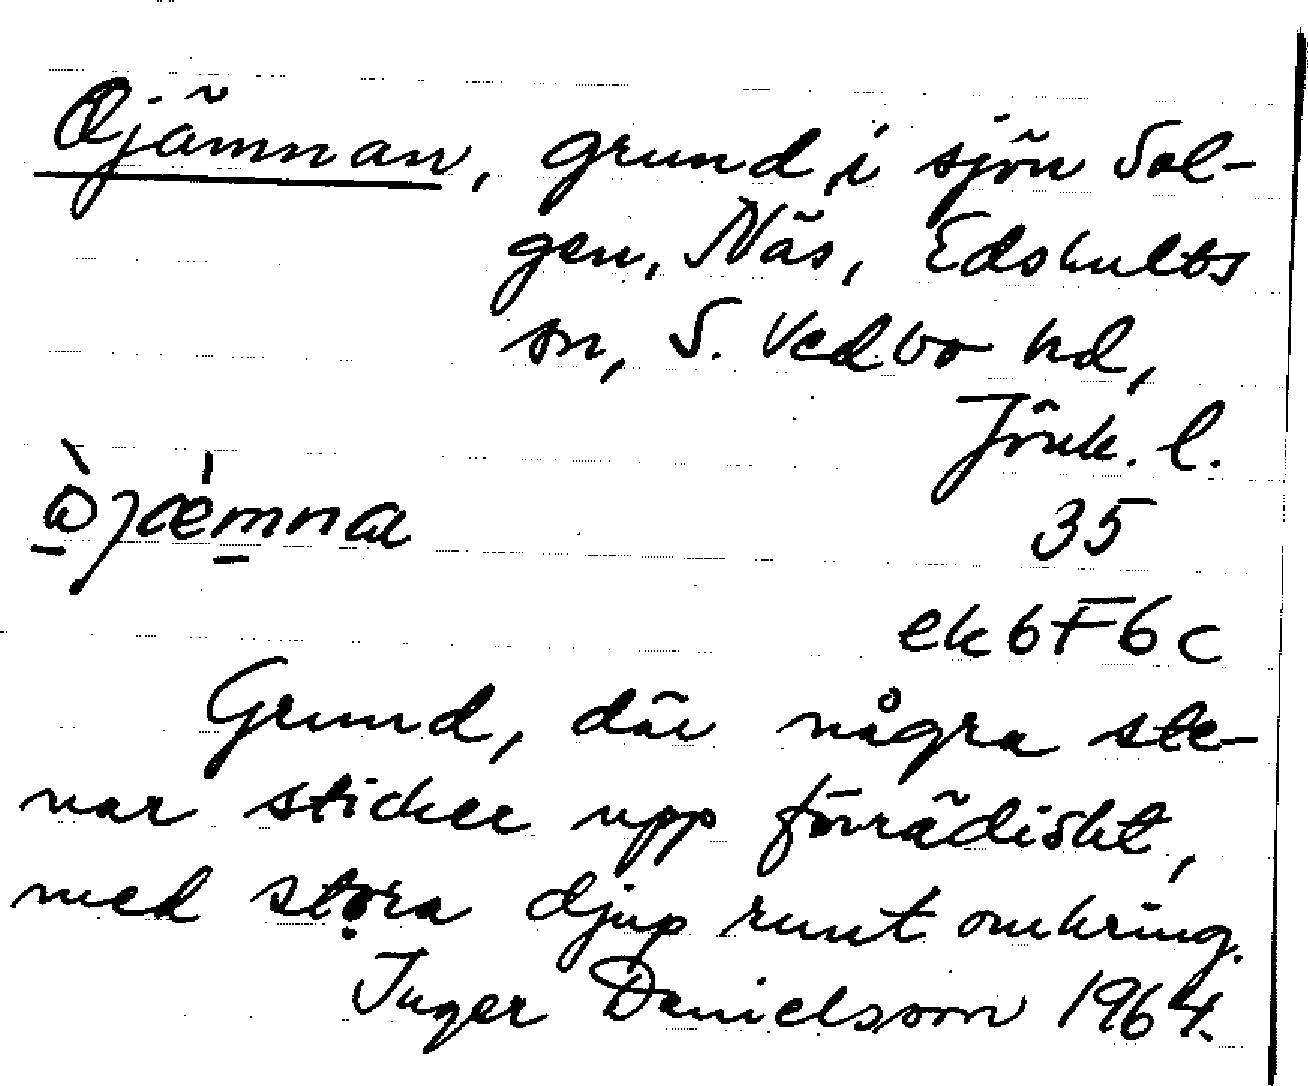 Ojämnan, grund i sjön Sol-
gen, Näs, Edshults
sn, S. Vedbo hd,
Jönk. l.
35
ek 6F6c
Grund, där några ste-
nar sticker upp förrädiskt,
med stora djup runt omkring.
Inger Danielsson 1964.